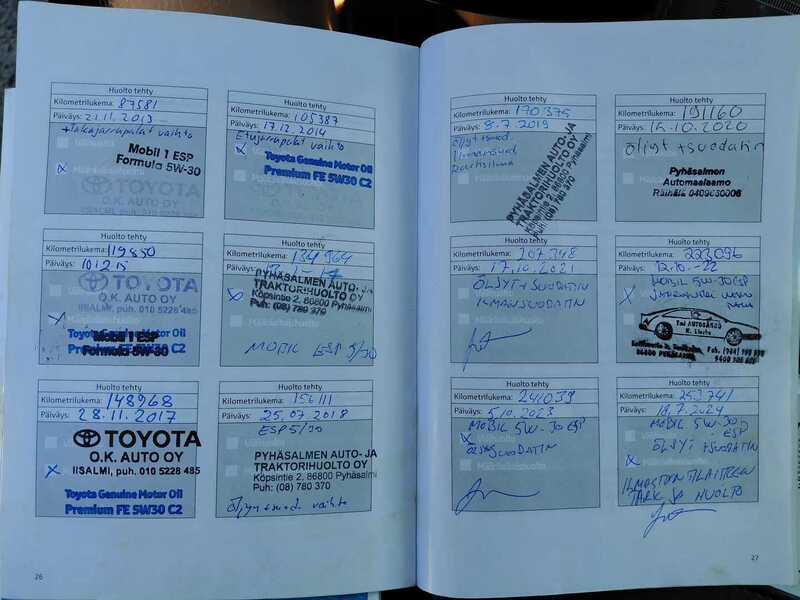 Huolto tehty
Kilometrilukema: 87581
Päiväys: 21.11.2013
+takajarrupalat vaihto
Mobil 1 ESP
Formula 5W-30
x
TOYOTA
O.K. AUTO OY
IISALMI, puh. 010 5228 485
Huolto tehty
Kilometrilukema: 105387
Päiväys: 17.12.2014
Etujarrupalat vaihto
x
Toyota Genuine Motor Oil
Premium FE 5W30 C2
Huolto tehty
Kilometrilukema: 119880
Päiväys:
TOYOTA
O.K. AUTO OY
IISALMI, puh. 010 5228 485
x
Toyota Genuine Motor Oil
Premium FE 5W30 C2
Mobil 1 ESP
Formula 5W-30
Huolto tehty
Kilometrilukema: 134964
Päiväys:
PYHÄSALMEN AUTO- JA
TRAKTORIHUOLTO OY
Köpsintie 2, 86800 Pyhäsalmi
Puh: (08) 780 370
x
MOBIL ESP 5/30
Huolto tehty
Kilometrilukema: 148968
Päiväys: 28.11.2017
TOYOTA
O.K. AUTO OY
x
IISALMI, puh. 010 5228 485
Toyota Genuine Motor Oil
Premium FE 5W30 C2
Huolto tehty
Kilometrilukema: 156111
Päiväys: 25.07.2018
ESP 5/30
PYHÄSALMEN AUTO- JA
TRAKTORIHUOLTO OY
Köpsintie 2, 86800 Pyhäsalmi
Puh: (08) 780 370
Öljyn+suod. vaihto
26
Huolto tehty
Kilometrilukema: 170375
Päiväys: 8.7 2019
öljyt+suod
PYHÄSALMEN AUTO- JA
TRAKTORIHUOLTO OY
Köpsintie 2, 86800 Pyhäsalmi
Puh: (08) 780 370
Huolto tehty
Kilometrilukema: 191160
Päiväys: 14.10.2020
öljyt+suodatin
Pyhäsalmen
Automaalaamo
Räihälä 0409630006
Huolto tehty
Kilometrilukema: 207348
Päiväys: 17.10.2021
ÖLJYT+SUODATIN
ILMANSUODATIN
Huolto tehty
Kilometrilukema: 223096
Päiväys: 12.10.-22
MOBIL 5W-30 ESP
x
Tmi AUTOSÄHKÖ
86800 PYHÄSALMI
Huolto tehty
Kilometrilukema: 24039
Päiväys: 5.10.2023
MOBIL 5W-30 ESP
x
ÖLJY+SUODATIN
Huolto tehty
Kilometrilukema: 253741
Päiväys: 18.7.2024
MOBIL 5W-30
ESP
ÖLJYT +SUODATIN
x
ILMASTOINTILAITTEEN
TARK JA HUOLTO
27